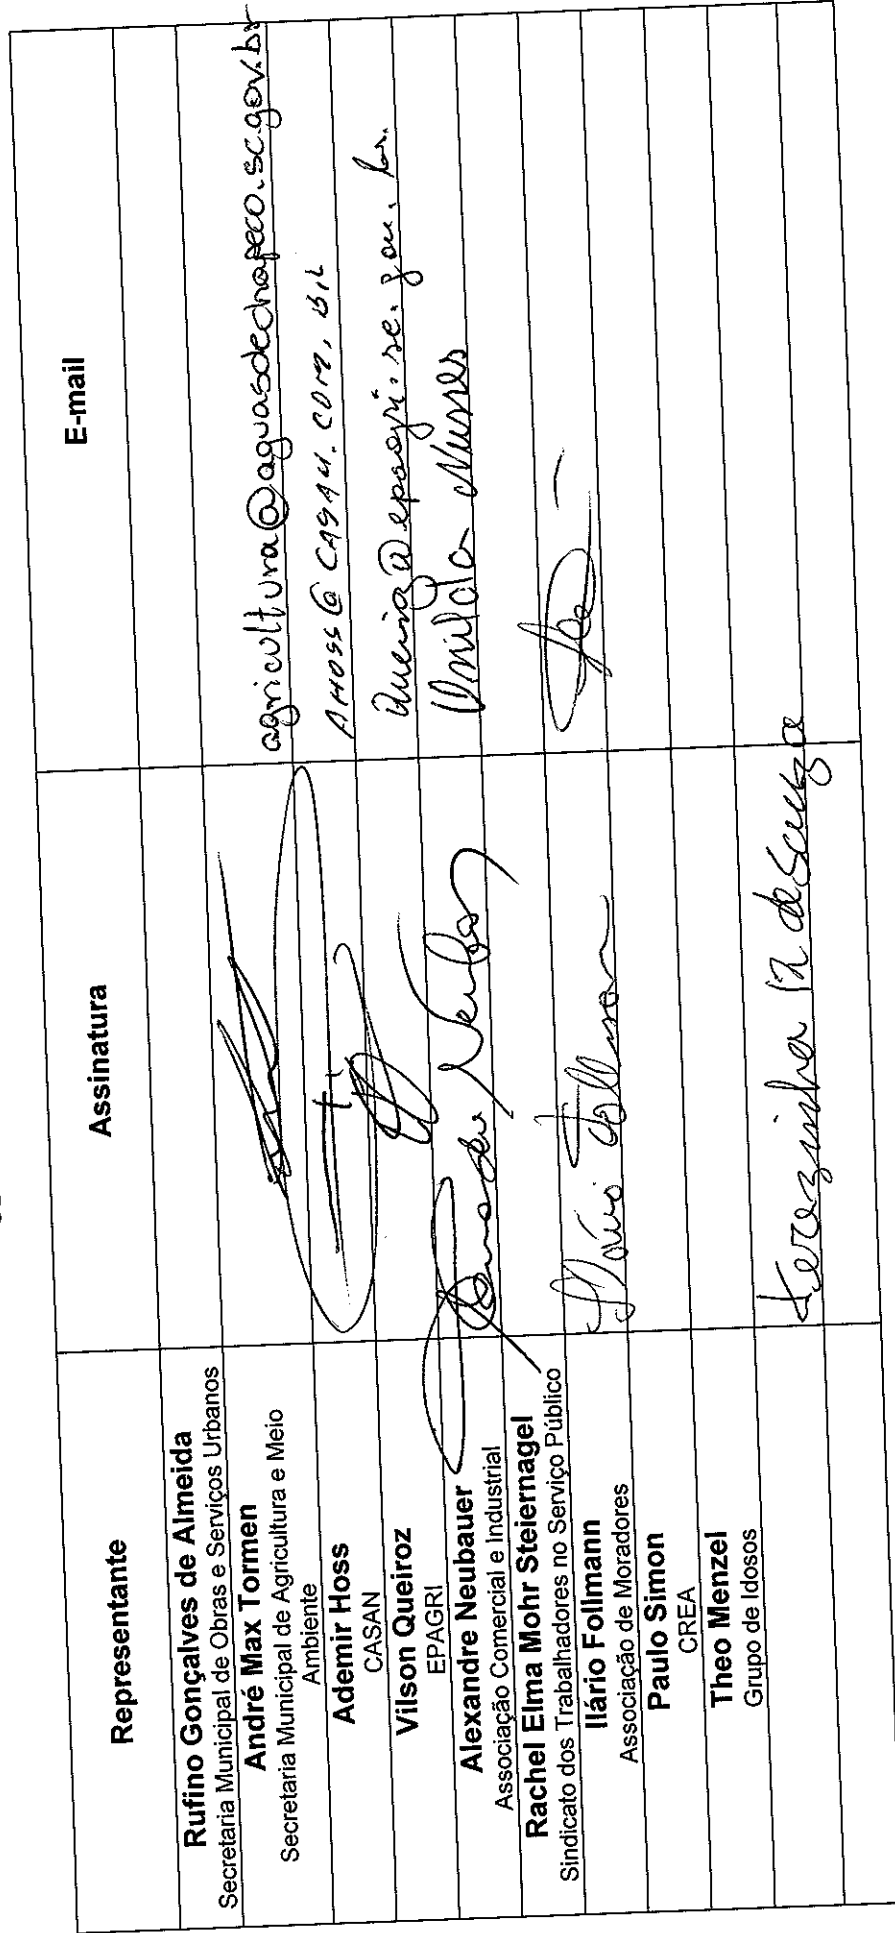 Representante
Assinatura
E-mail
Rufino Gonçalves de Almeida
Secretaria Municipal de Obras e Serviços Urbanos
André Max Tormen
Secretaria Municipal de Agricultura e Meio
Ambiente
agricultura@aguasdechapeco.sc.gov.br
Ademir Hoss
CASAN
AHOSS@CASAN.COM.BR
Vilson Queiroz
EPAGRI
Alexandre Neubauer
Associação Comercial e Industrial
Nunes
Rachel Elma Mohr Steiernagel
Sindicato dos Trabalhadores no Serviço Público
Ilário Follmann
Associação de Moradores
Ilário Follmann
Paulo Simon
CREA
Theo Menzel
Grupo de Idosos
terezinha R de Souza